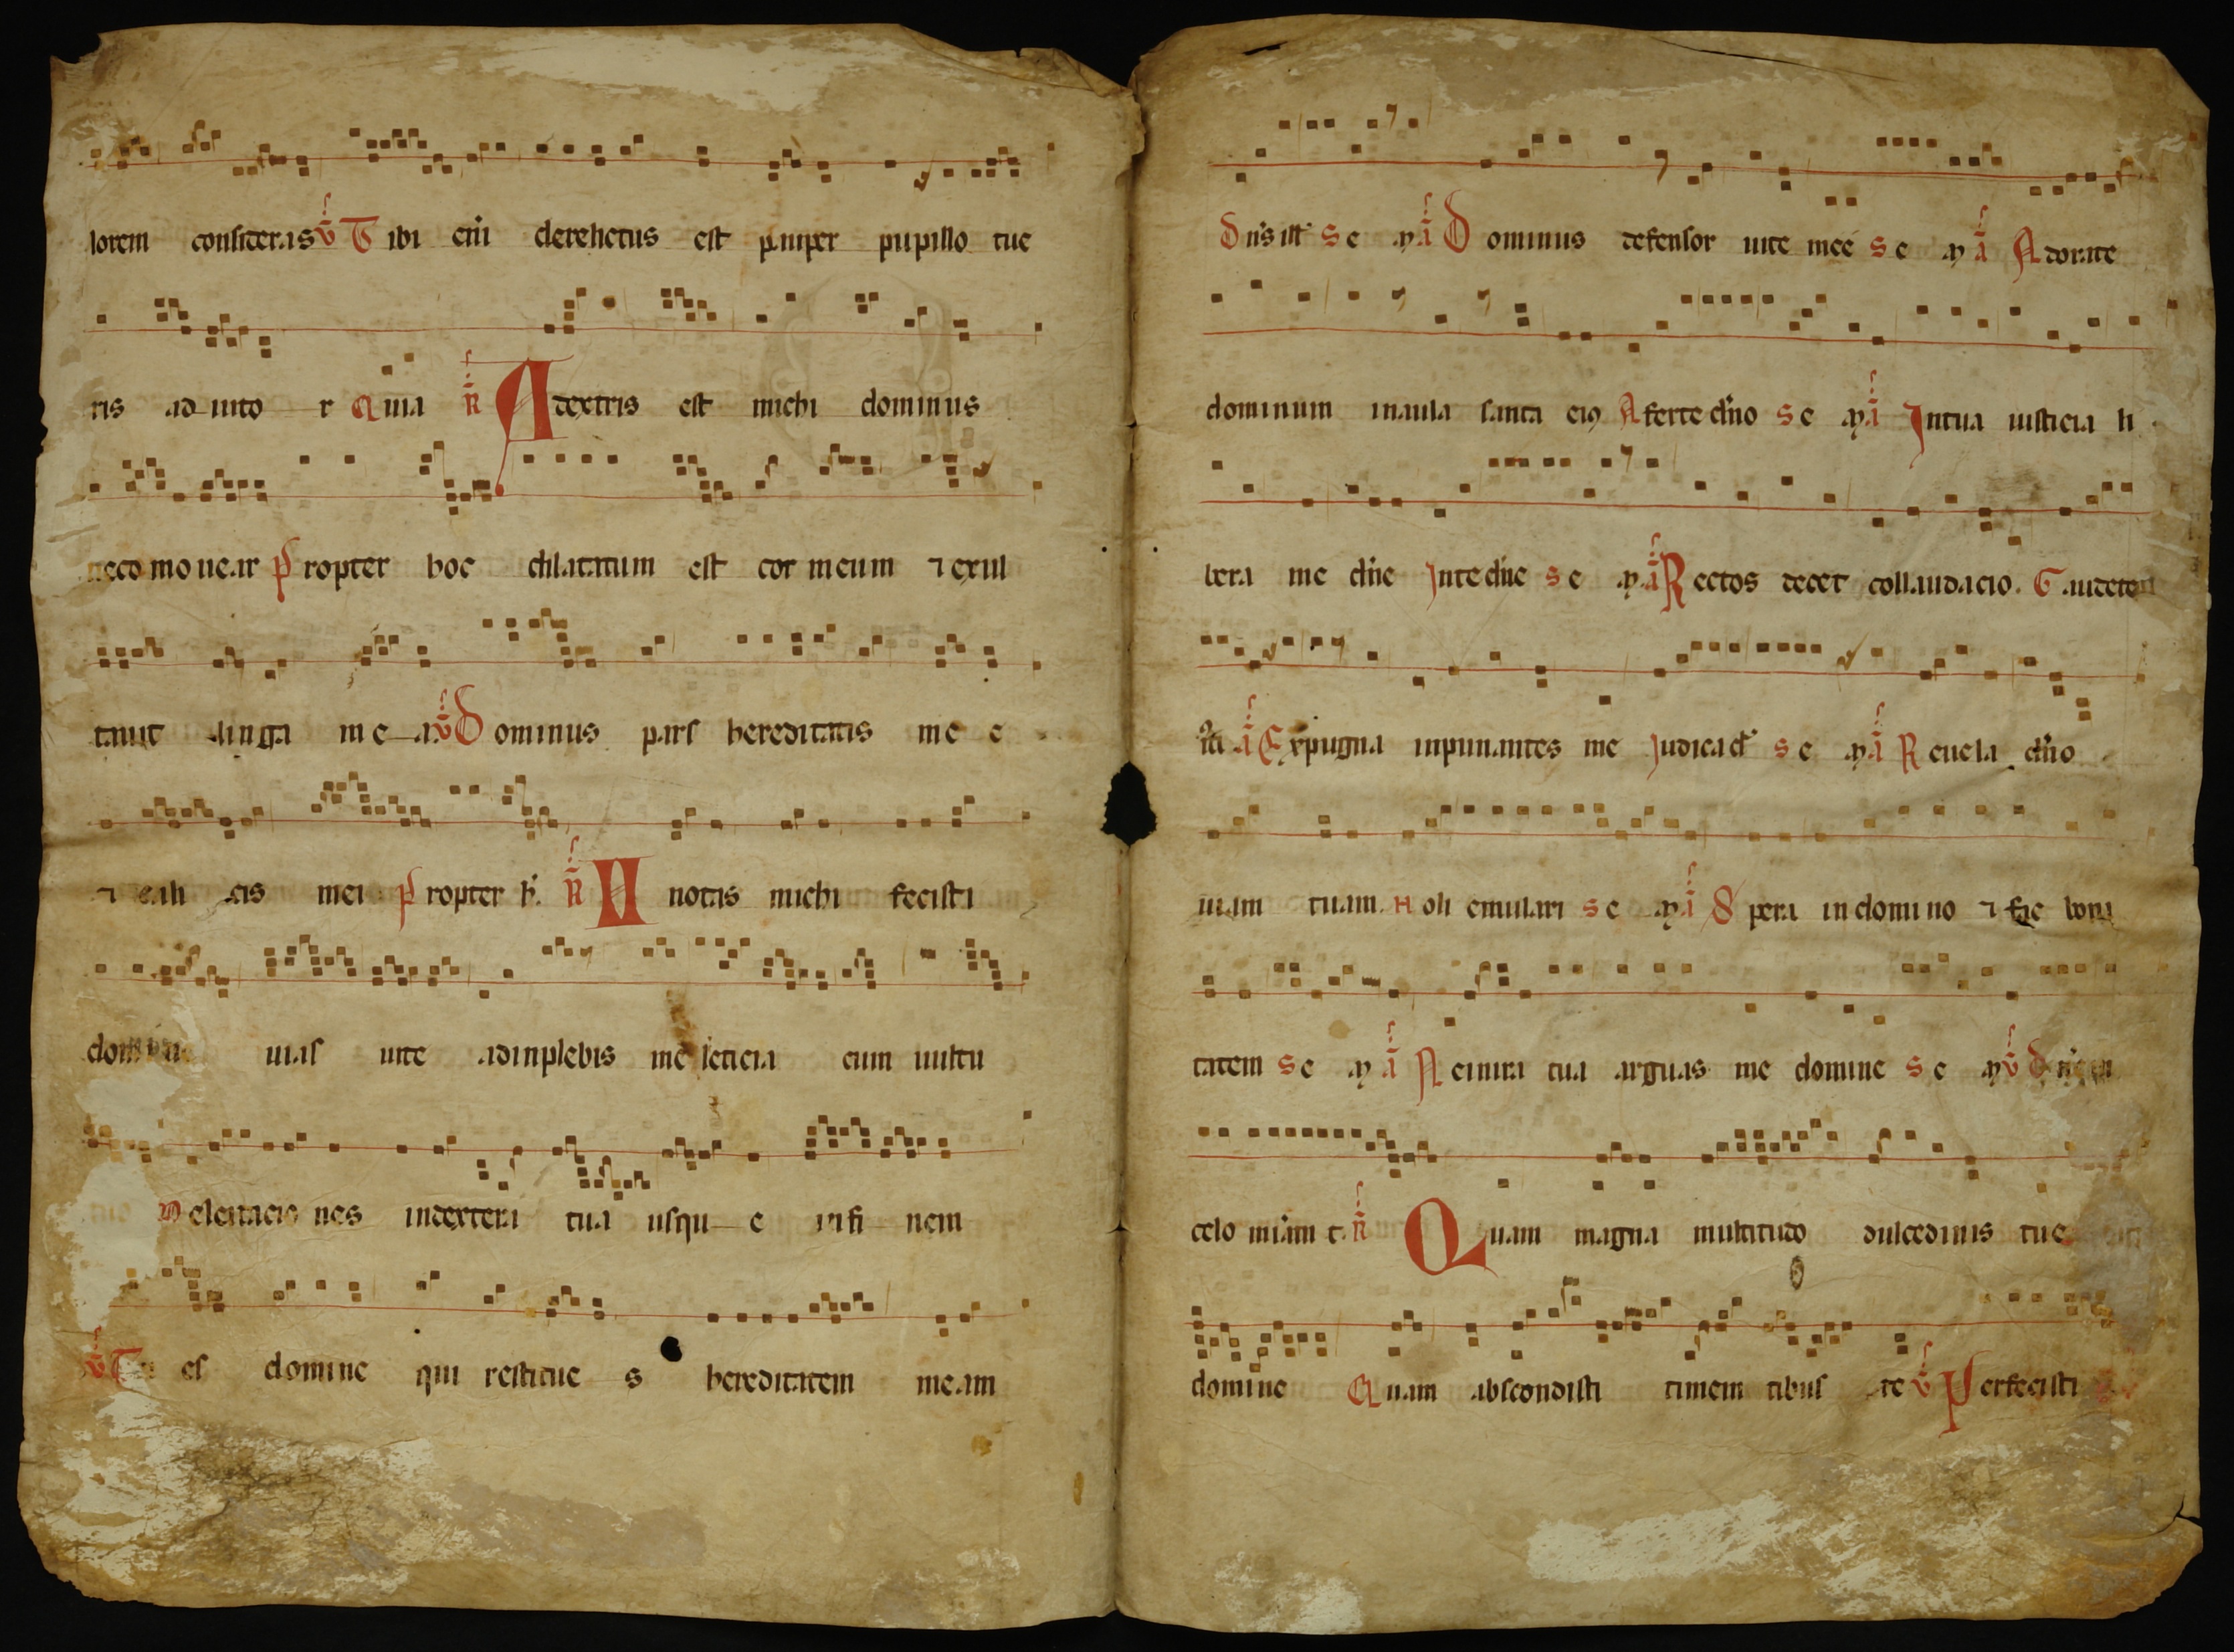 lorem consideras v Tibi eni derelictus est pauper pupillo tue
ris adiuto r Quia R A dextris est michi dominus
necomouear Propter hoc dilatatum est cor meum ⁊ exul
tauit linga me a v Dominus pars hereditatis me e
⁊ cali cis mei Propter h. R Notas michi fecisti
domine uias uite adinplebis me leticia cum uultu
tuo Delectacio nes indextera tua usqu e infi nem
v Tu es domine qui restitue s hereditatem meam
Dns ill se aya Dominus defensor uite mee se aya Adorate
dominum inaula santa eiꝯ Aferte dno se aya Intua iusticia li
bera me dne Inte dne se aya Rectos decet collaudacio. Gaudete
a Expugna inpunantes me Iudica d se aya Reuela dno
uiam tuam. Noli emulari se aya Spera indomino ⁊ fac boni
tatem se aya Neinira tua arguas me domine se ay v
celo miam t. R Quam magna multitudo dulcedinis tue
domine Quam abscondisti timem tibus te v Perfecisti